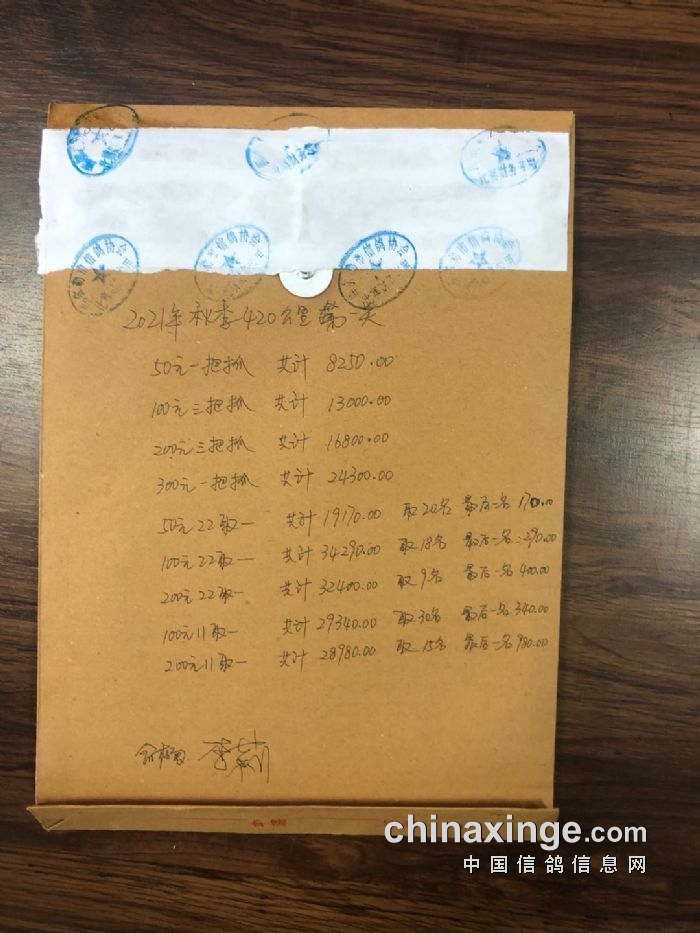 信鸽协会
信鸽协会
信鸽协会
2021年秋季420公里第一关
50元一把抓 共计 8250.00
100元三把抓 共计 13000.00
200元三把抓 共计 16800.00
300元一把抓 共计 24300.00
50元22取一 共计19170.00 取22名 最后一名 170.00
100元22取一 共计34290.00 取18名 最后一名:290.00
200元22取一 共计32400.00 取9名 最后一名 400.00
100元11取一 共计29340.00 取30名 最后一名 340.00
200元11取一 共计28980.00 取15名 最后一名 980.00
chinaxinge.com
中国信鸽信息网